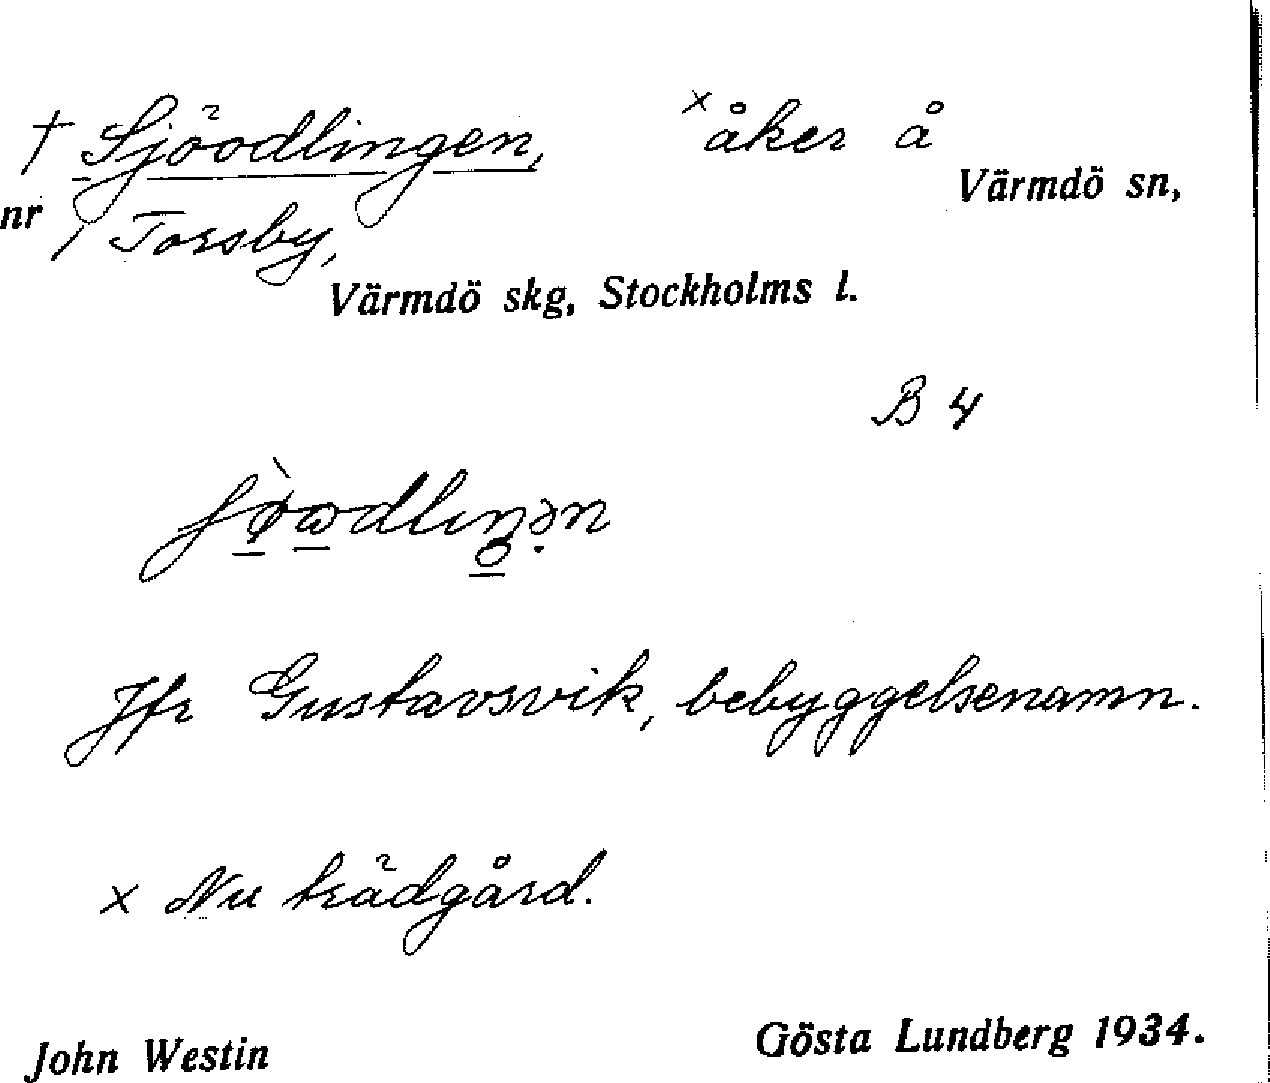 † Sjöodlingen, ˣåker å
Värmdö sn,
nr 1 Torsby,
Värmdö skg, Stockholms l.
B 4
Jfr Gustavsvik, bebyggelsenamn.
x Nu trädgård.
John Westin Gösta Lundberg 1934.